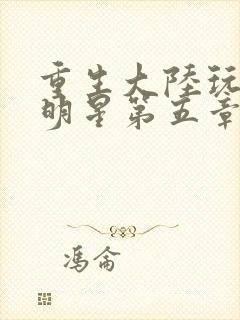 重生大陸玩
明星第五章
馮侖